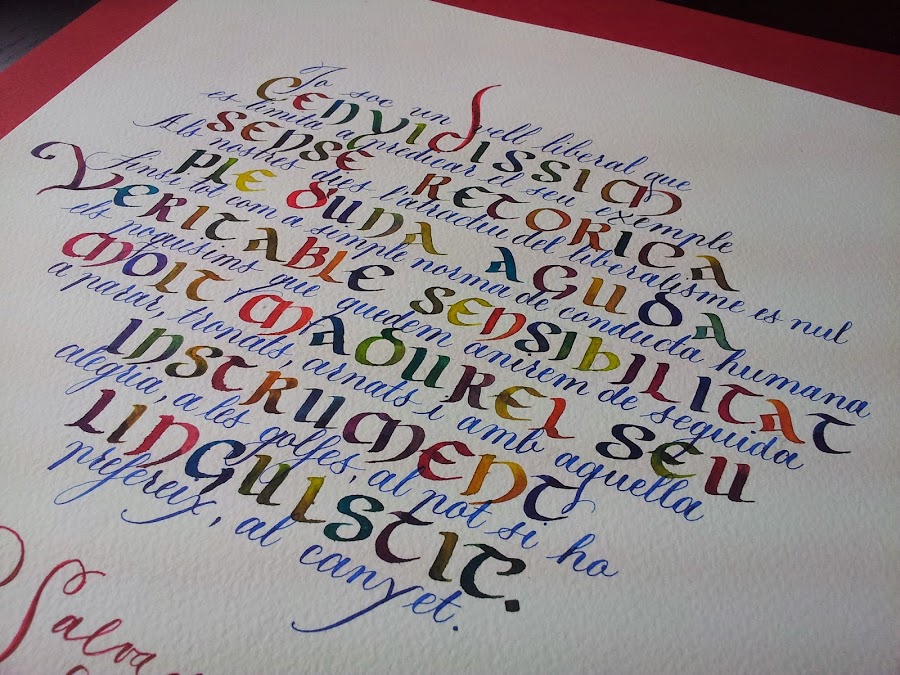 Jo soc un vell liberal que
CENYIDISSIM
es limita a predicar el seu exemple
SENSE RETORICA
Als nostres dies del liberalisme es nul
PLE D'UNA AGUDA
Fins i tot com a simple norma de conducta humana
VERITABLE SENSIBILITAT
els poquisims que quedem anirem de seguida
MOLT MADUR EL SEU
a parar, tronats, arnats i amb aquella
INSTRUMENT
alegria, a les golfes, al pot si ho
LINGUISTIC.
prefereix, al canyet.
Salva